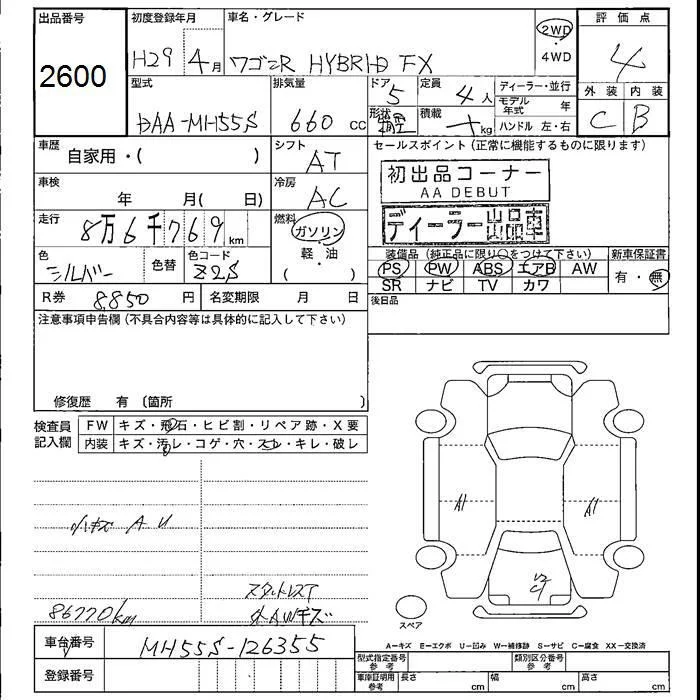 出品番号 初度登録年月 車名・グレード 評価点
2600 H29年 4月 ワゴンR HYBRID FX 2WD ・ 4WD 4
型式 排気量 ドア 5 定員 4人 ディーラー・並行 外装 内装
DAA-MH55S 660 cc 形状 積載 kg モデル年式 年 C B
ハンドル 左・右
車歴 自家用・( ) シフト AT セールスポイント (正常に機能するものに限ります)
車検 年 月( 日) 冷房 AC 初出品コーナー
AA DEBUT
走行 8万6千769km 燃料 ガソリン ディーラー出品車
軽・油
( ・ )
色 シルバー 色替 色コード Z2S 装備品 (純正品に限り○をつけて下さい) 新車保証書
PS PW ABS エアB AW 有・無
R券 8850円 名変期限 月 日 SR ナビ TV カワ
注意事項申告欄 (不具合内容等は具体的に記入して下さい) 後日品
修復歴 有 〔箇所 〕
検査員 FW キズ・飛石・ヒビ割・リペア跡・X要
記入欄 内装 キズ・汚レ・コゲ・穴・スレ・キレ・破レ
A1 A1
小キズ A U
86770km スタットレス
AWキズ
U2
スペア
A=キズ E=エクボ U=凹み W=補修跡 S=サビ C=腐食 XX=交換済
車台番号 MH55S-126355
型式指定番号 参考 類別区分番号 参考
登録番号 車庫証明用 参考 長さ cm 幅 cm 高さ cm